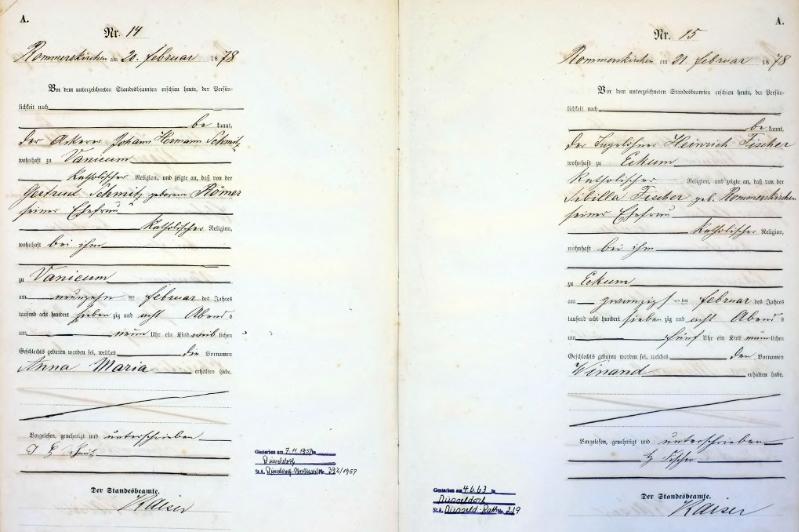 A.
Nr. 14
Rommerskirchen am 21. Februar 1878
Vor dem unterzeichneten Standesbeamten erschien heute, der Persön-
lichkeit nach
be kannt,
der Ackerer Johann Hermann Schmitz
wohnhaft zu Vanicum
katholischer Religion, und zeigte an, daß von der
Gertrud Schmitz geborenen Römer
seiner Ehefrau
katholischer Religion,
wohnhaft bei ihm
zu Vanicum
am neunzehn ten Februar des Jahres
tausend acht hundert sieben zig und acht Abends
um neun Uhr ein Kind weiblichen
Geschlechts geboren worden sei, welches den Vornamen
Anna Maria erhalten habe.
Vorgelesen, genehmigt und unterschrieben
Der Standesbeamte.
Kaiser
Gestorben am 7.11.1957 in
Düsseldorf
A.
Nr. 15
Rommerskirchen am 21. Februar 1878
Vor dem unterzeichneten Standesbeamten erschien heute, der Persön-
lichkeit nach
be kannt,
der Tagelöhner Heinrich Fischer
wohnhaft zu Eckum
katholischer Religion, und zeigte an, daß von der
Sibilla Fischer geb. Rommerskirchen
seiner Ehefrau
katholischer Religion,
wohnhaft bei ihm
zu Eckum
am zwanzigsten Februar des Jahres
tausend acht hundert sieben zig und acht Abends
um fünf Uhr ein Kind männlichen
Geschlechts geboren worden sei, welches den Vornamen
Winand erhalten habe.
Vorgelesen, genehmigt und unterschrieben
H Fischer
Der Standesbeamte.
Kaiser
Gestorben am 4.6.63 in
Düsseldorf